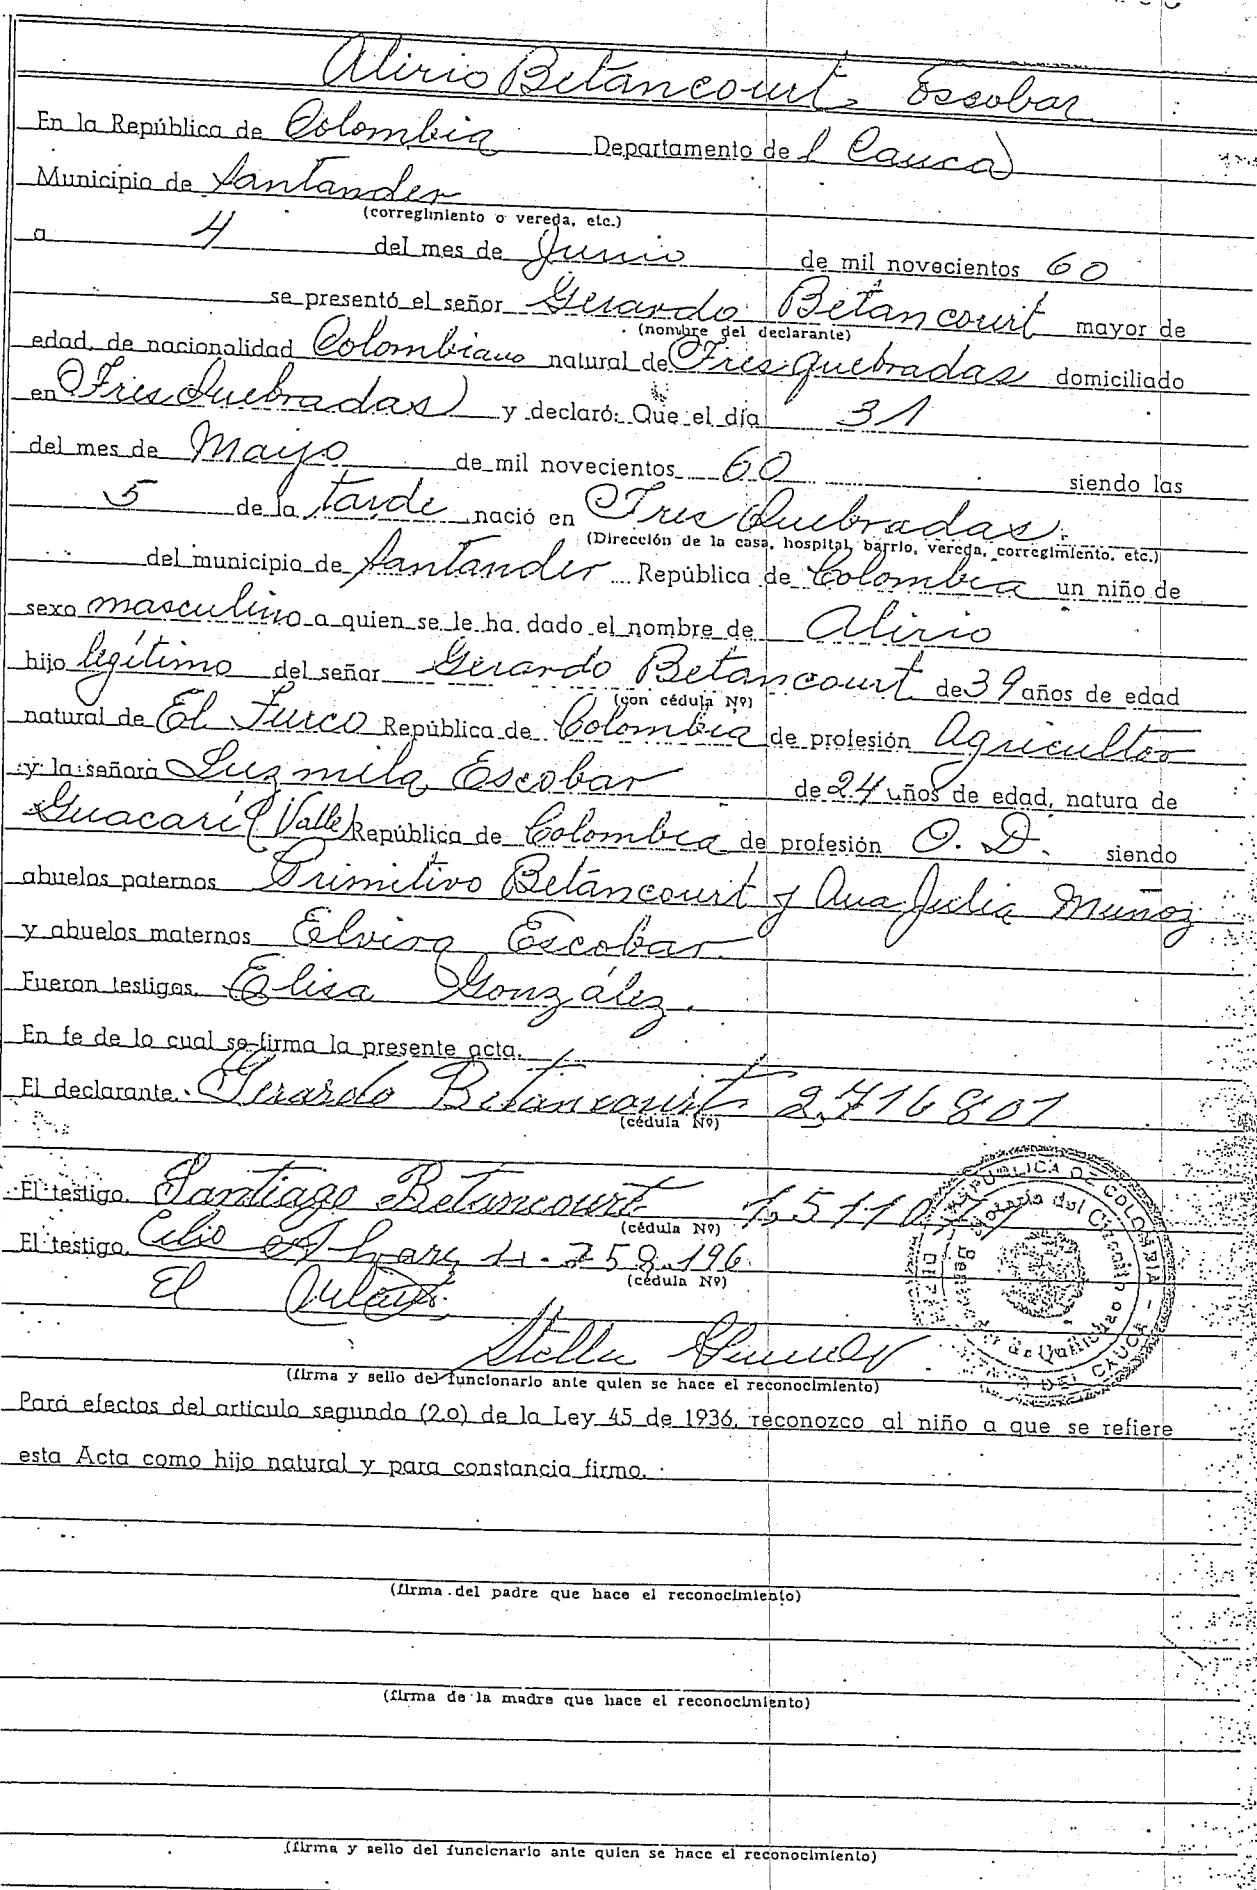 Alirio Betancourt Escobar
En la República de Colombia Departamento del Cauca
Municipio de Santander
(corregimiento o vereda, etc.)
a 4 del mes de Junio de mil novecientos 60
se presentó el señor Gerardo Betancourt mayor de
(nombre del declarante)
edad, de nacionalidad Colombiano natural de Tres quebradas domiciliado
en Tres Quebradas y declaró: Que el día 31
del mes de Mayo de mil novecientos 60 siendo las
5 de la tarde nació en Tres Quebradas.
(Dirección de la casa, hospital, barrio, vereda, corregimiento, etc.)
del municipio de Santander República de Colombia un niño de
sexo masculino a quien se le ha dado el nombre de Alirio
hijo legítimo del señor Gerardo Betancourt de 39 años de edad
(con cédula Nº)
natural de El Turco República de Colombia de profesión Agricultor
y la señora Luzmila Escobar de 24 años de edad, natura de
Guacarí (Valle) República de Colombia de profesión O. D. siendo
abuelos paternos Primitivo Betáncourt y Ana Julia Muñoz
y abuelos maternos Elvira Escobar.
Fueron testigos. Elisa González.
En fe de lo cual se firma la presente acta.
El declarante. Gerardo Betancourt 2,716801
(cédula Nº)
El testigo. Santiago Betancourt
(cédula Nº)
El testigo. Celio
(cédula Nº)
El
Stella
REPUBLICA DE COLOMBIA
Notario del Circuito
de Quilichao
DEL CAUCA
(firma y sello del funcionario ante quien se hace el reconocimiento)
Para efectos del artículo segundo (2.o) de la Ley 45 de 1936, reconozco al niño a que se refiere
esta Acta como hijo natural y para constancia firmo.
(firma del padre que hace el reconocimiento)
(firma de la madre que hace el reconocimiento)
(firma y sello del funcionario ante quien se hace el reconocimiento)